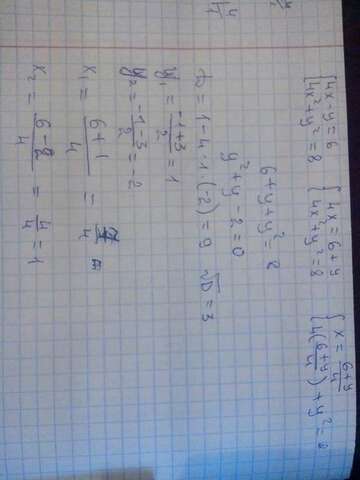 {4x-y=6 {4x=6+y {x=6+y/4
{4x²+y²=8 {4x²+y²=8 {4(6+y/4)+y²=8
6+y+y²=8
y²+y-2=0
D=1-4·1·(-2)=9 √D=3
y₁=-1+3/2=1
y₂=-1-3/2=-2
x₁=6+1/4=7/4
x₂=6-2/4=4/4=1